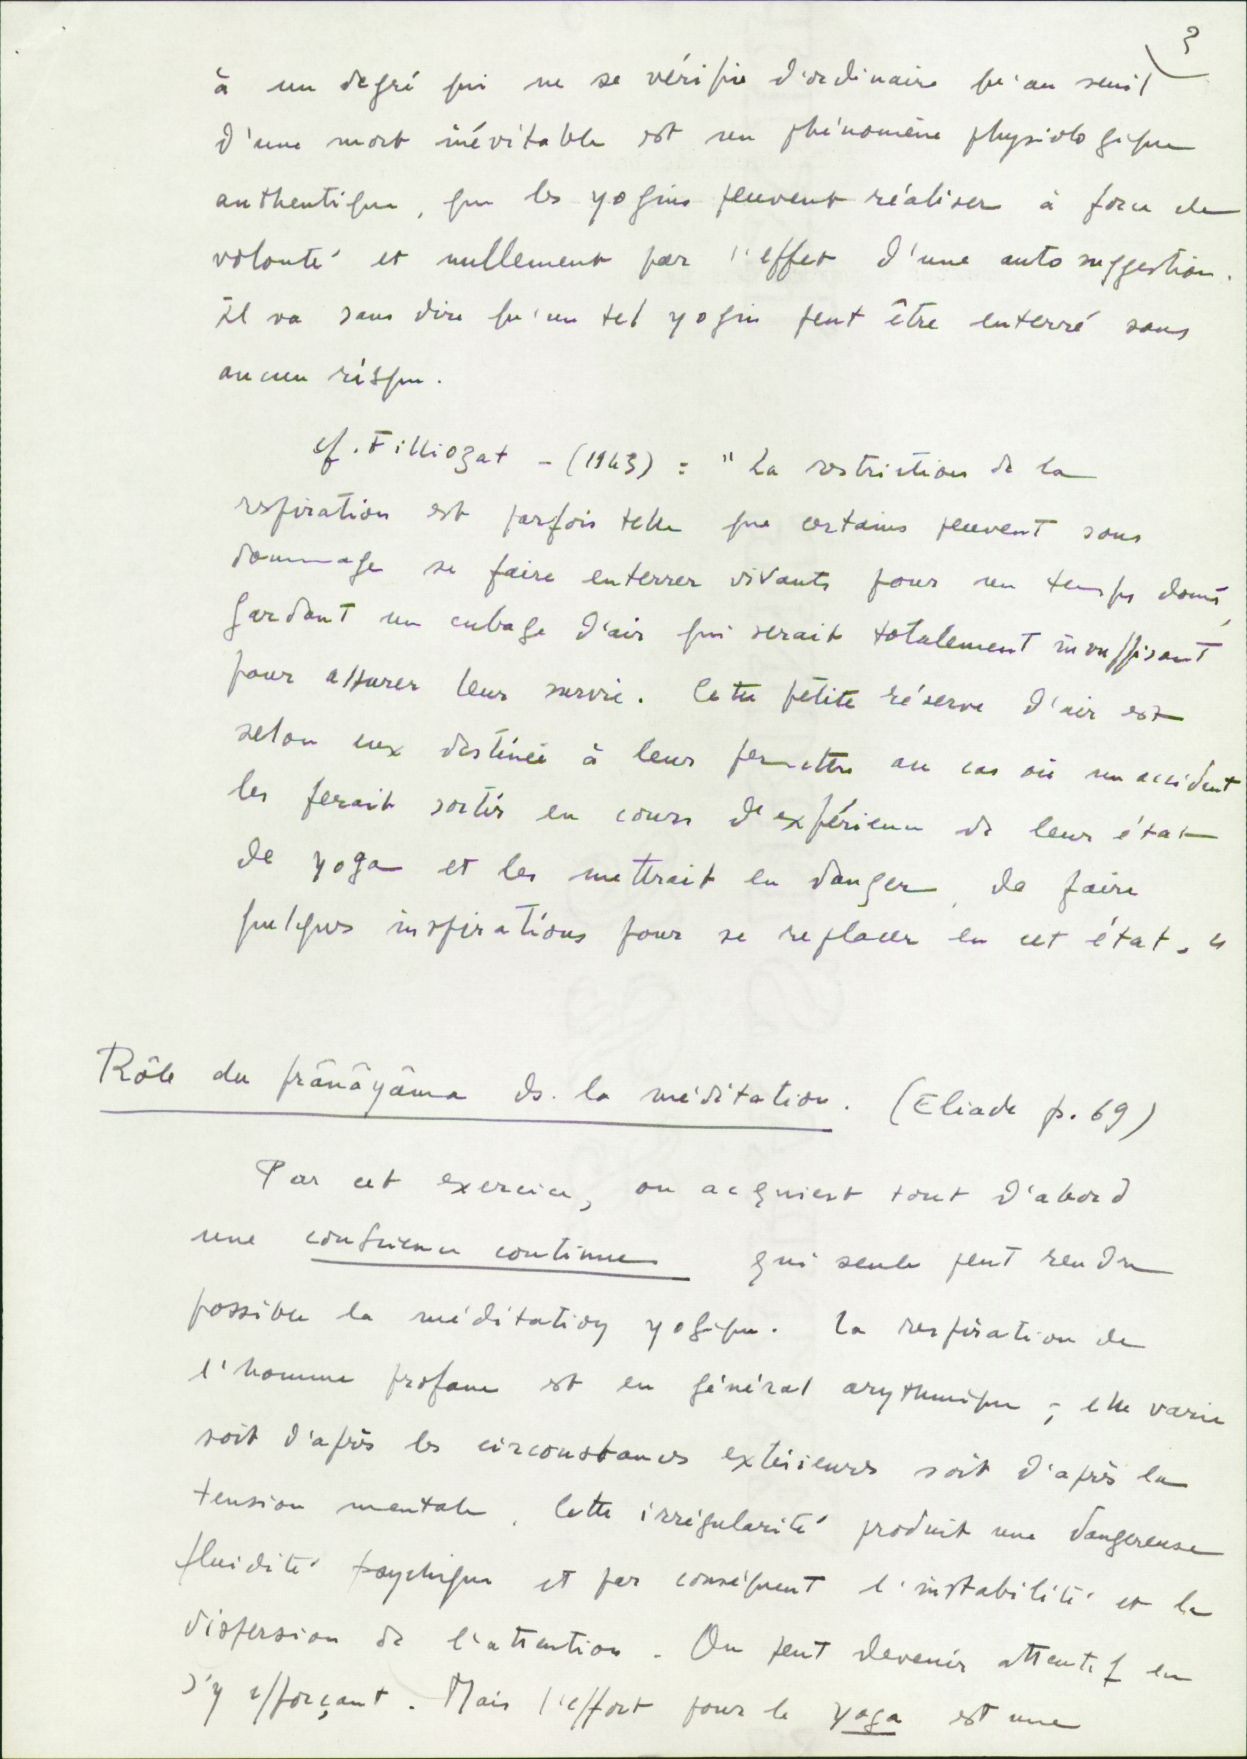 3
à un degré qui ne se vérifie d'ordinaire qu'au seuil
d'une mort inévitable est un phénomène physiologique
authentique, que les yogins peuvent réaliser à force de
volonté et nullement par l'effet d'une auto suggestion.
Il va sans dire qu'un tel yogin peut être enterré sans
aucun risque.
cf. Filliozat - (1943) : "La restriction de la
respiration est parfois telle que certains peuvent sans
dommage se faire enterrer vivants pour un temps donné,
gardant un cubage d'air qui serait totalement insuffisant
pour assurer leur survie. Cette petite réserve d'air est
selon eux destinée à leur permettre au cas où un accident
les ferait sortir en cours d'expérience de leur état
de yoga et les mettrait en danger, de faire
quelques inspirations pour se replacer en cet état. "
Rôle du prânâyâma ds. la méditation. (Eliade p. 69)
Par cet exercice, on acquiert tout d'abord
une conscience continue qui seule peut rendre
possible la méditation yogique. La respiration de
l'homme profane est en général arythmique ; elle varie
soit d'après les circonstances extérieures soit d'après la
tension mentale. Cette irrégularité produit une dangereuse
fluidité psychique et par conséquent l'instabilité et la
dispersion de l'attention. On peut devenir attentif en
s'y efforçant. Mais l'effort pour le yoga est une